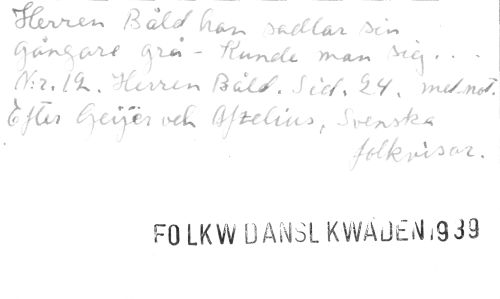 Herren Båld han sadlar sin
gångare grå - Kunde man sig...
N:r. 12. Herren Båld. Sid. 24. med not.
Efter Geijer och Afzelius, Svenska
folkvisor.
FOLKW DANSLKWÄDEN 1939